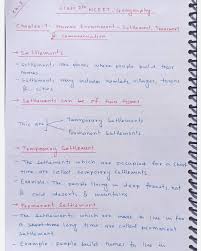 Class 7th NCERT, Geography
Chapter-7 - Human Environment - Settlement, Transport
& Communication
→ Settlements
- Settlements are places where people build their
homes.
- Settlements may includes hamlets, villages, towns
& cities
→ Settlements can be of two types:
This are
Temporary Settlements
Permanent Settlements
→ Temporary Settlement
- The settlements which are occupied for a short
time are called temporary settlements.
- Example: The people living in deep forests, hot
& cold deserts, & mountains
→ Permanent Settlement
- The settlements which are made to live in for
a long time are called permanent
settlement.
- Example - people build homes to live in